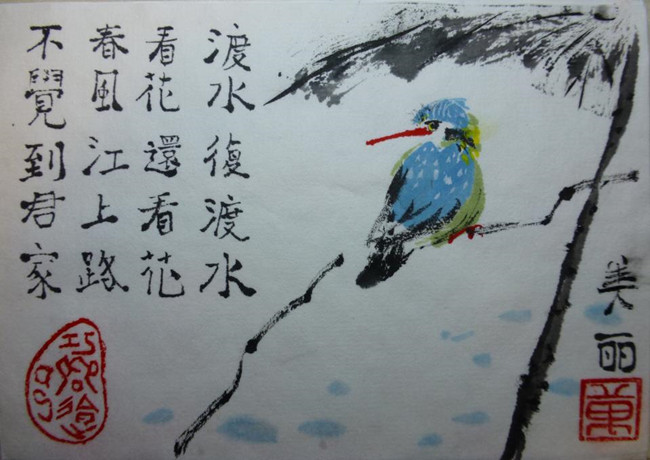 渡水復渡水
看花還看花
春風江上路
不覺到君家
美丽